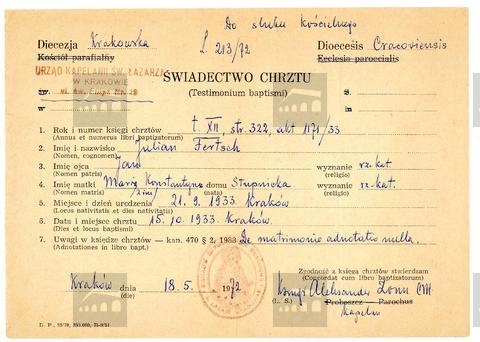 Do ślubu kościelnego
Diecezja Krakowska L. 213/72 Dioecesis Cracoviensis
Kościół parafialny Ecclesia parocialis
URZĄD KAPELANII ŚW. ŁAZARZA
W KRAKOWIE
w ul. św.
ŚWIADECTWO CHRZTU
(Testimonium baptismi)
S.
w
1. Rok i numer księgi chrztów t. XII, str. 322, akt 1171/33
(Annus et numerus libri baptizatorum)
2. Imię i nazwisko Julian Fertsch
(Nomen, cognomen)
3. Imię ojca Jan wyznanie rz. kat.
(Nomen patris) (religio)
4. Imię matki Maria Konstantyna z domu Stupnicka wyznanie rz.-kat.
(Nomen matris) (nata) (religio)
5. Miejsce i dzień urodzenia 21. 9. 1933. Kraków
(Locus nativitatis et dies nativitatis)
6. Data i miejsce chrztu 15. 10. 1933. Kraków.
(Dies et locus baptismi)
7. Uwagi w księdze chrztów — kan. 470 § 2, 1988 De matrimonio adnotatio nulla.
(Adnotationes in libro bapt.)
Zgodność z księgą chrztów stwierdzam
(Concordat cum libro baptizatorum)
Kraków dnia 18. 5. 1972
(die)
Aleksander Zonn CM
(L. S.) Proboszcz — Parochus
Kapelan